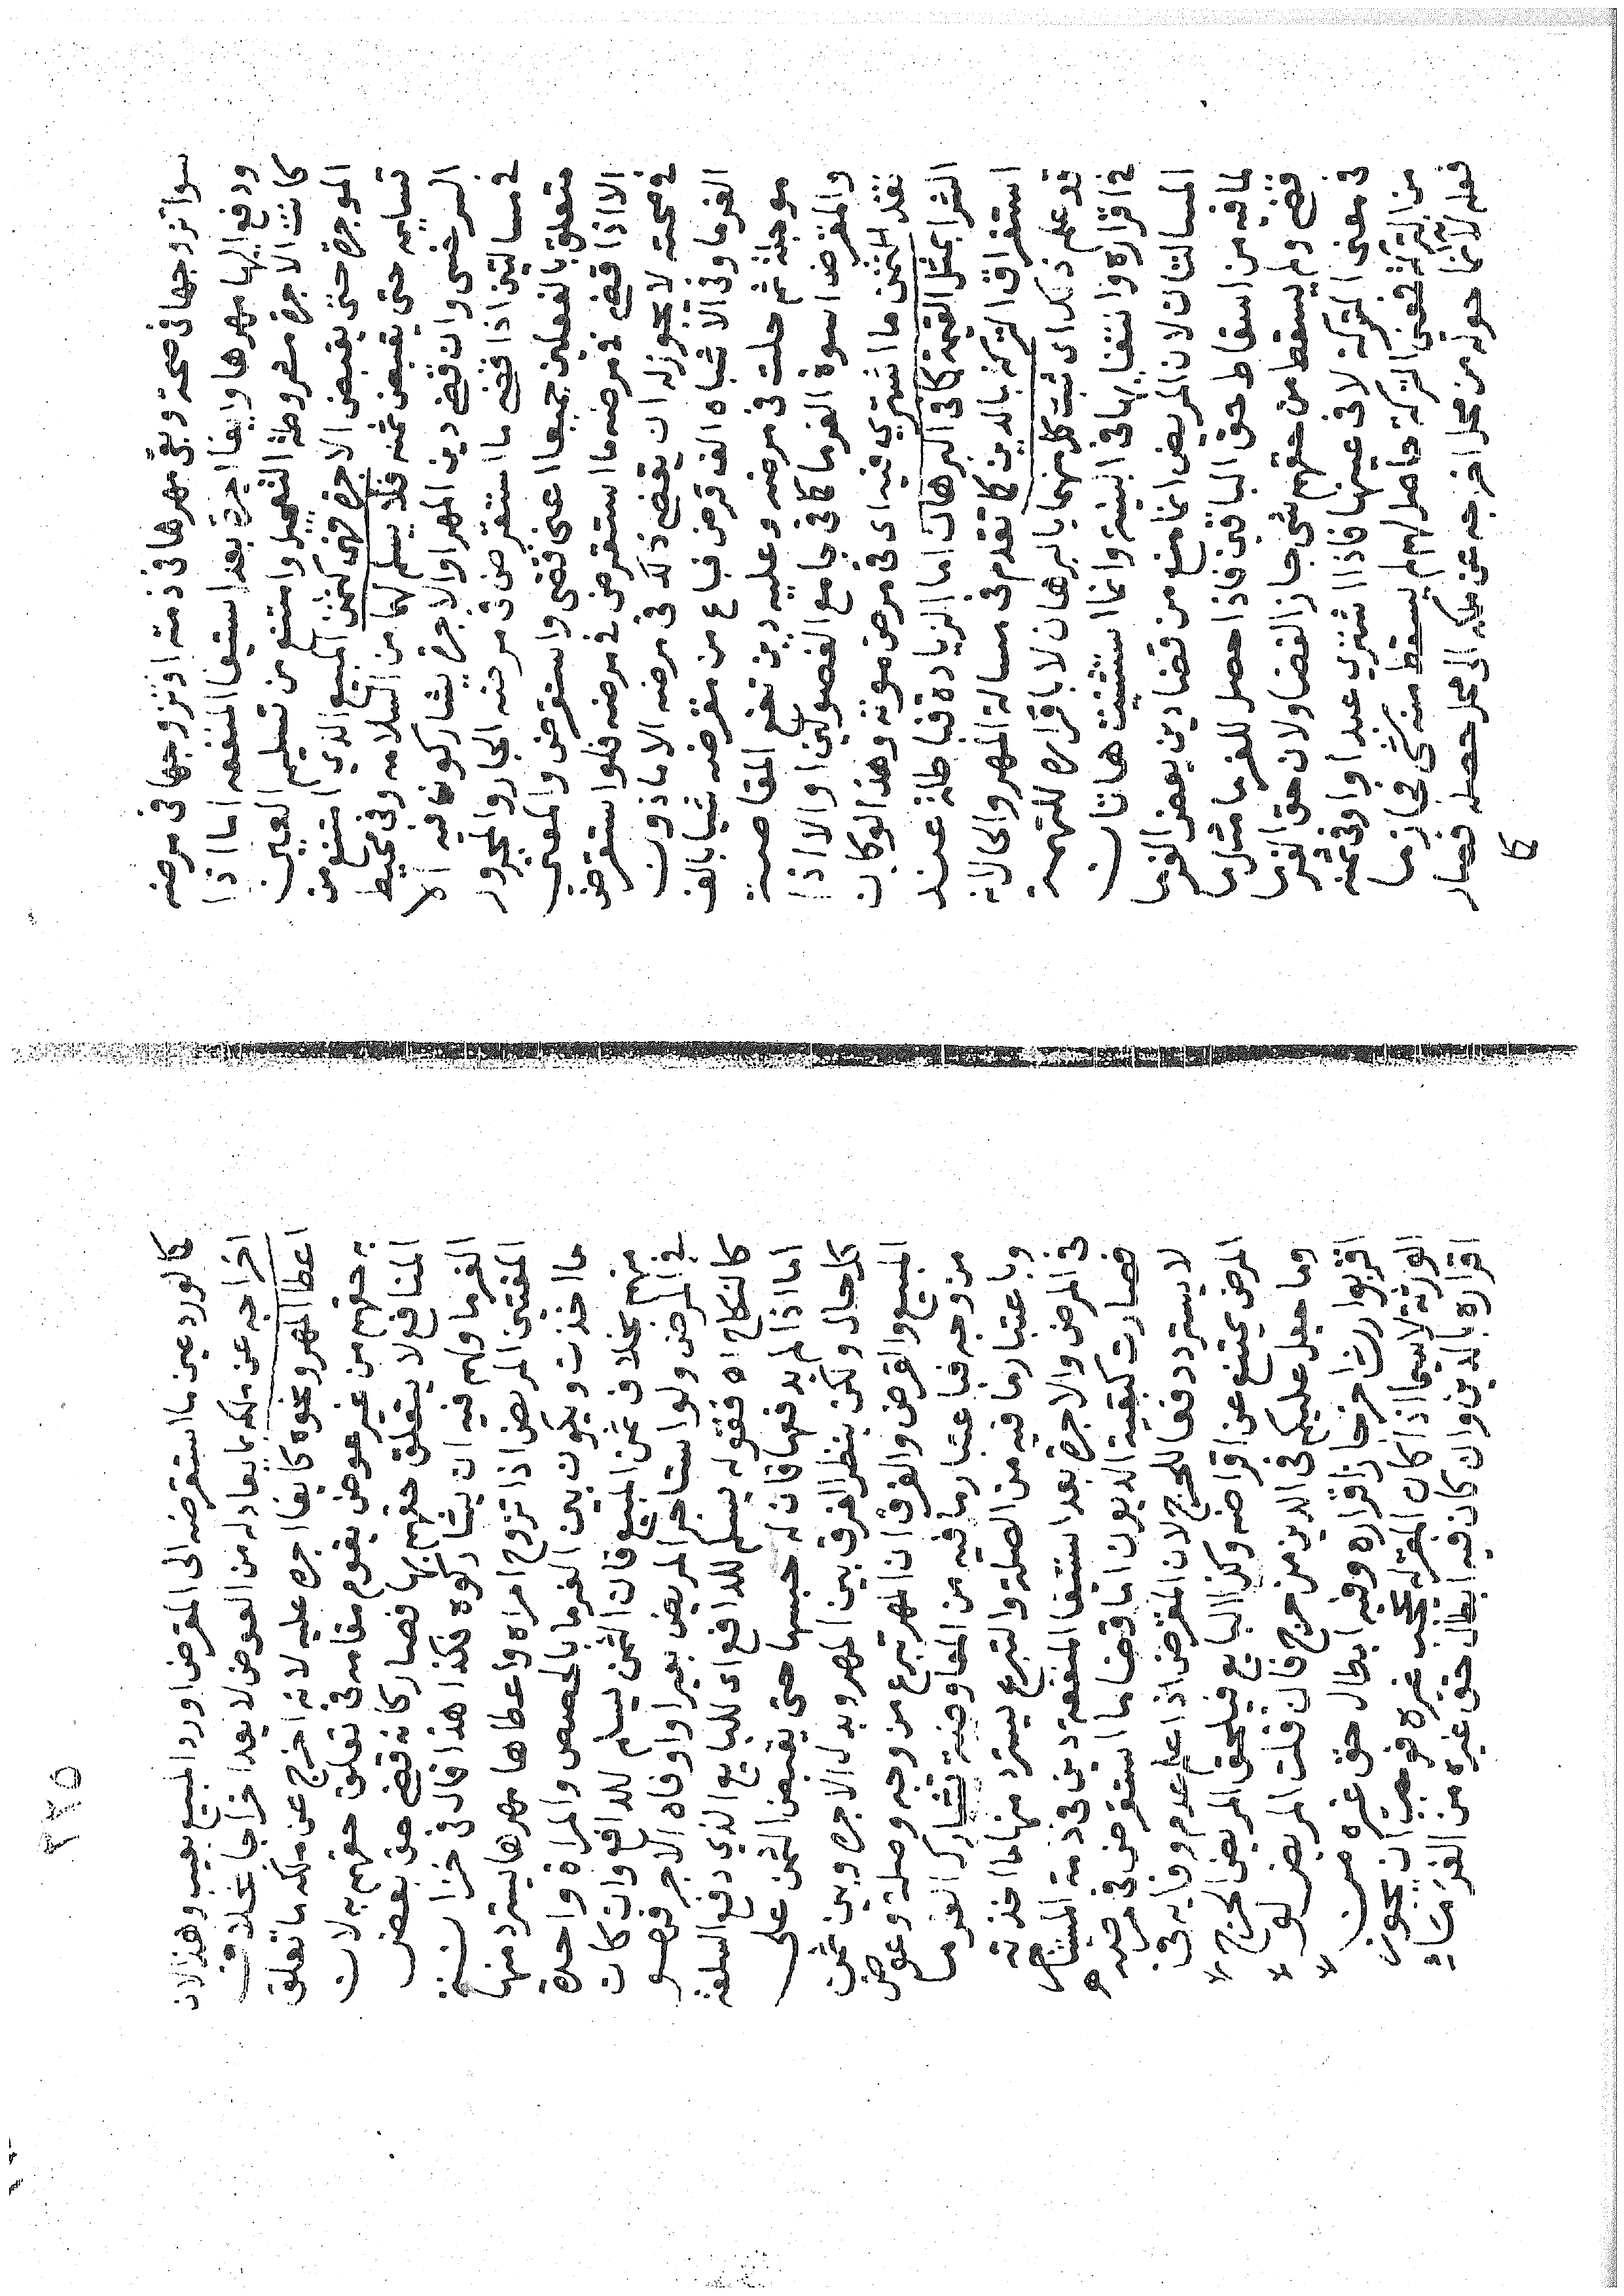 سوا تزوجها فى صحته وبقى مهرها فى ذمته او تزوجها فى مرضه
ودفع اليها مهرها وايفا اجرة بعد استيفا المنفعه اما اذا
كانت الاجرة مشروطة التعجيل وامتنع من تسليم العين
الموجرة حتى يقبض الاجرة فهى كثمن المبيع الذي امتنع من
تسليمه حتى يقبض ثمنه فلا يسلم لهما من السلامه وفى محيط
السرخسى وان قضى دين المهر او الاجرة يشاركونهما فيه الا
فى مسالتين اذا قضى ما استقرض فى مرضه الجار والمجرور
متعلق بالفعلين جميعا اعنى قضى واستقرض والمعنى
الا اذا قضى فى مرضه ما استقرض فى مرضه فلو استقرض
فى صحته لا يجوز له ان يقضى ذلك فى مرضه الا ماذون
الغرما وفى الاشباه الف قرض فباع من مقرضه شيا بالف
موجلة ثم حلت فى مرضه وعليه دين تقع المقاصة
والمقرض اسوة الغرما كما فى جامع الفصولين او الا اذا
نقد ثمن ما اشترى فيه اى فى مرض موته وهذا لو كان
الشرا بمثل القيمة كما فى البرهان اما الزيادة فباطلة عند
استغراق التركة بالدين كما تقدم فى مسالة المهر والحال انه
قد علم ذلك اى ثبت كل منهما بالبرهان لا باقراره للتهمة
فى اقراره وانتفايها فى البينة وانما استثنيت هاتان
المسالتان لان المريض انما منع من قضا دين بعض الغرما
لما فيه من اسقاط حق الباقين فاذا حصل للغرما مثل ما
قضى ولم يسقط من حقهم شى جاز القضا ولان حق الغرما
فى معنى التركة لا فى عينها فاذا اشترى عبدا و اوفى ثمنه
من التركة فمعنى التركة حاصل لهم لم يسقط منه شى فجاز ما
فعله لانما حوله من محل اخرجه عن ملكه الى محل حصله فصار
كا
٢٢٥
كا لو رد عين ما استقرضه الى المقرض او رد المبيع بعيب وهذا لان
اخراجه عن ملكه بما يعادله من العوض لا يعد اخراجا بخلاف
اعطا المهر ونحوه كايفا اجرة عليه لانه اخرج عن ملكه ما تعلق
به حقهم من غير عوض يقوم مقامه فى تعلق حقهم به لان
المنافع لا يتعلق حقهم بها فصار كانه قضى حق بعض
الغرما ولهم فيه ان يشاركوه فكذا هذا قال فى خزانة
المفتين المريض اذا تزوج امراة واعطاها مهرها يسترد منها
ما اخذت ويكون بين الغرما بالحصص والمراة واحدة
منهم بخلاف ثمن المبيع فان الثمن يسلم للدافع وان كان
فى المرض ولو استاجر المريض بعيرا واوفاه الاجر فهو
كالنكاح اه فقوله يسلم للدافع اى للبايع الذي دفع السلعة
اما اذا لم يدفعها فان له حبسها حتى يقبض الثمن على
كل حال ولكن ينظر الفرق بين المهر وبدل الاجرة وبين ثمن
المبيع والقرض والفرق ان المهر تبرع من وجه وصلة وعوض
من وجه فباعتبار ما فيه من المعاوضة تشارك الغرما
وباعتبار ما فيه من الصلة والتبرع يسترد منها ما اخذته
فى المرض والاجرة بعد استيفا المنفعة دين فى ذمة المستاجر
فصارت كبقية الديون اما قضا ما استقرض فى مرضه
لا يسترد دفعا للحرج لان المقرض اذا علم عدم وفايه فى
المرض يمتنع عن اقراضه وكذا البايع فيلحق المريض الحرج
وما جعل عليكم فى الدين من حرج فان قلت المريض لو
اقر بوارث اخر جاز اقراره وفيه ابطال حق غيره من
الورثة لا سيما اذا كان المقر له يحجب غيره فوجب ان يجوز
اقراره بالدين وان كان فيه ابطال حق غيره من الغرما